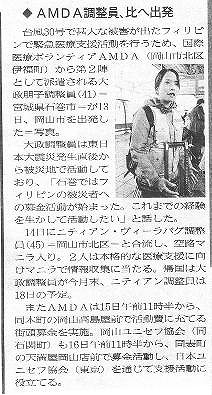 ◆ AMDA調整員、比へ出発
　台風30号で甚大な被害が出たフィリピ
ンで緊急医療支援活動を行うため、国際
医療ボランティアAMDA（岡山市北区
伊福町）から第2陣
として派遣される大
政朋子調整員(41)＝
宮城県石巻市＝が13
日、岡山市を出発し
た＝写真。
　大政調整員は東日
本大震災発生直後か
ら被災地で活動して
おり、「石巻ではフ
ィリピンの被災者へ
の募金活動が始まった。これまでの経験
を生かして活動したい」と話した。
　14日にニティアン・ヴィーラバグ調整
員(45)＝岡山市北区＝と合流し、空路マ
ニラ入り。2人は本格的な医療支援に向
けてマニラで情報収集に当たる。帰国は大
政調整員が今月末、ニティアン調整員は
18日の予定。
　またAMDAは15日午前11時半から、
同本町の岡山高島屋前で活動費に充てる
街頭募金を実施。岡山ユニセフ協会（同
石関町）も16日午前11時半から、同表町
の天満屋岡山店前で募金活動し、日本ユ
ニセフ協会（東京）を通じて支援活動に
役立てる。